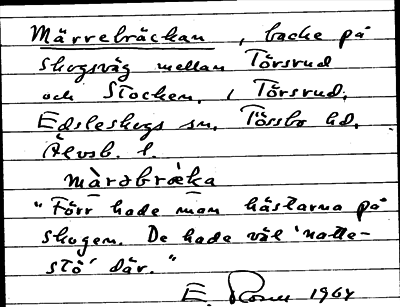 Märrebräckan, backe på
skogsväg mellan Törsrud
och Stocken, i Törsrud,
Edsleskogs sn, Tössbo hd,
Älvsb. l.
màrəbræ̀ka
"Förr hade man hästarna på
skogen. De hade väl 'natte-
stö' där."
E. 1964